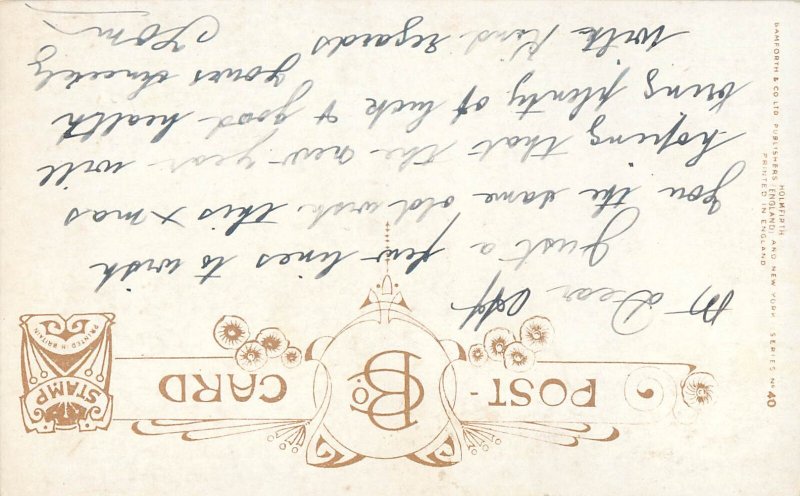 POST-
B Co.
CARD
STAMP
PRINTED IN BRITAIN
M Dear
Just a few lines to wish
you the same old wish this xmas
hoping that the new year will
bring plenty of luck & good health
with kind regards yours sincerely
Tom
HOLMFIRTH
BAMFORTH & CO LTD. PUBLISHERS (ENGLAND) AND NEW YORK. SERIES No 40
PRINTED IN ENGLAND